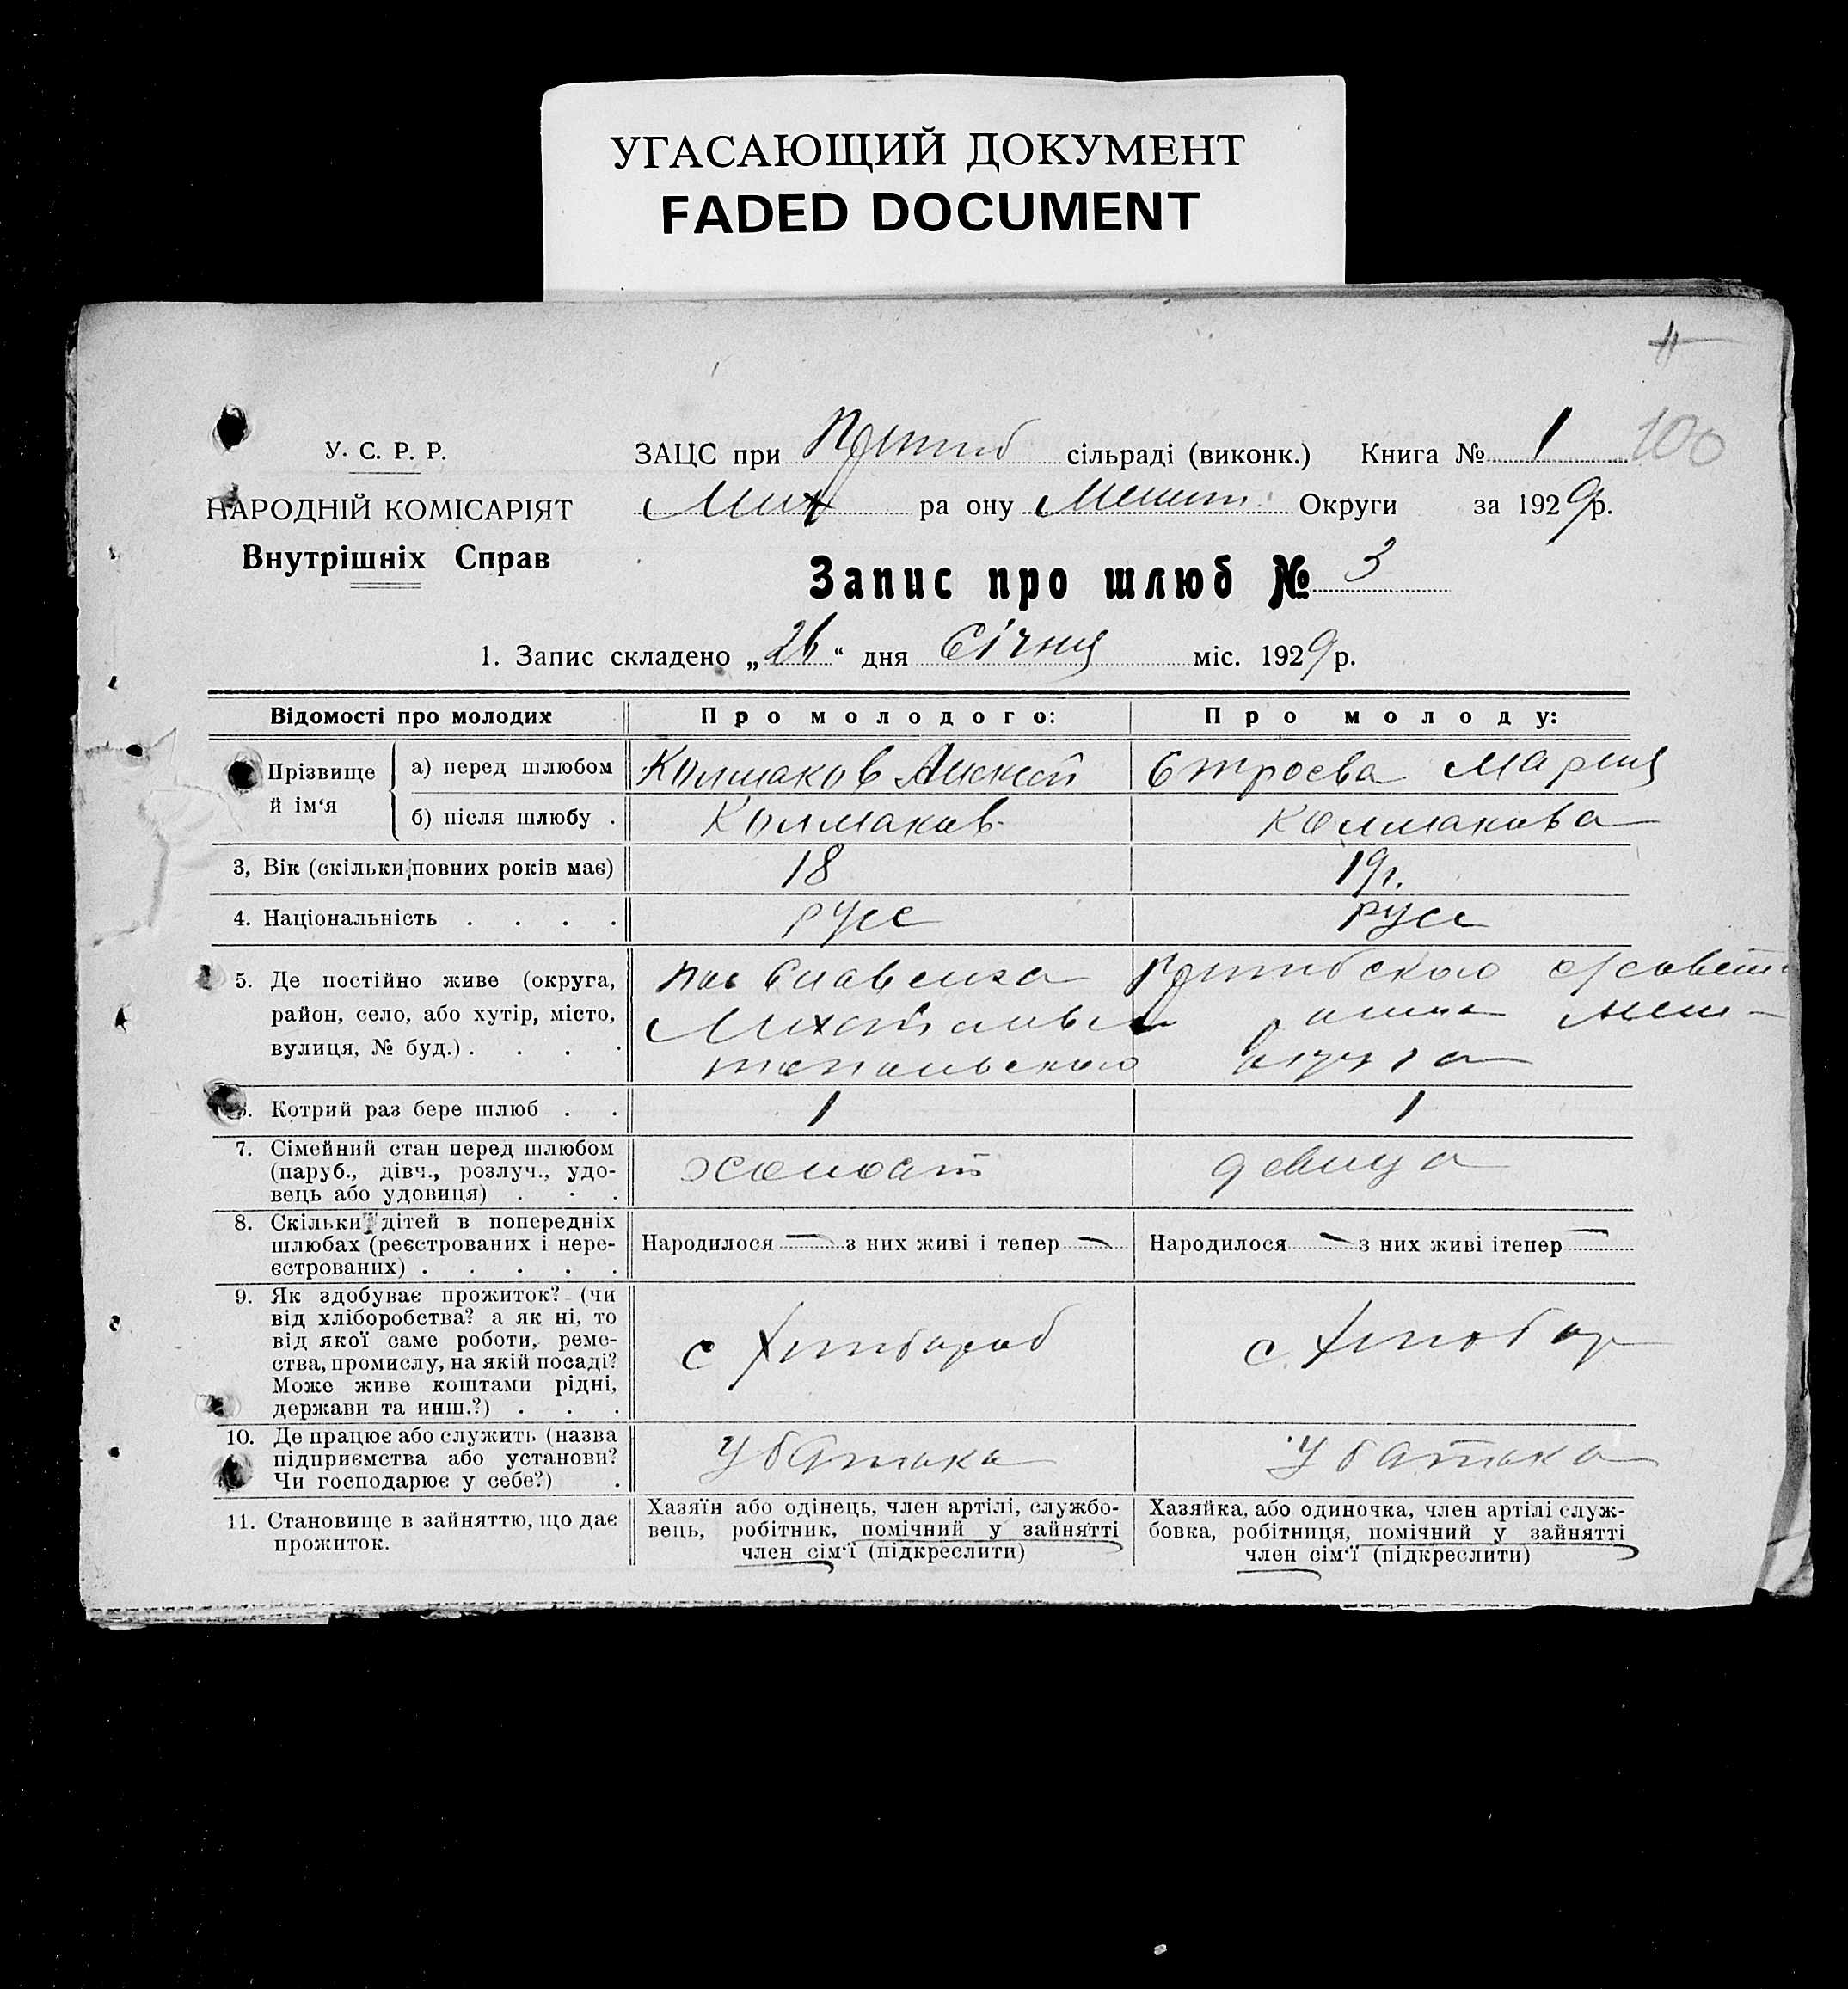 УГАСАЮЩИЙ ДОКУМЕНТ
FADED DOCUMENT
У. С. Р. Р.
НАРОДНІЙ КОМІСАРІЯТ
Внутрішніх Справ
ЗАЦС при сільраді (виконк.) Книга № 1 100
Мих ра ону Мелит. Округи за 1929р.
Запис про шлюб № 3
1. Запис складено „26“ дня Січня міс. 1929р.
Відомості про молодих Про молодого: Про молоду:
Прізвище й ім‘я
а) перед шлюбом Колмаков Алексей Строева Мария
б) після шлюбу . Колмаков Колмакова
3, Вік (скільки повних років має) 18 19 г.
4. Національність . . . . русс русс
5. Де постійно живе (округа,
район, село, або хутір, місто,
вулиця, № буд.) . . . .
пос с/совета
Михайловск района Мели-
топольского округа
6. Котрий раз бере шлюб . . 1 1
7. Сімейний стан перед шлюбом
(паруб., дівч., розлуч., удо-
вець або удовиця) . . .
холост девица
8. Скільки дітей в попередніх
шлюбах (реєстрованих і нере-
єстрованих) . . . . .
Народилося — з них живі і тепер — Народилося — з них живі ітепер —
9. Як здобуває прожиток? (чи
від хліборобства? а як ні, то
від якої саме роботи, реме-
ства, промислу, на якій посаді?
Може живе коштами рідні,
держави та инш.?) . . .
с Хлибароб с. Хлибор
10. Де працює або служить (назва
підприємства або установи?
Чи господарює у себе?) .
У батька У батька
11. Становище в зайняттю, що дає
прожиток.
Хазяїн або одінець, член артілі, службо-
вець, робітник, помічний у зайнятті
член сім‘ї (підкреслити)
Хазяйка, або одиночка, член артілі служ-
бовка, робітниця, помічний у зайнятті
член сім‘ї (підкреслити)